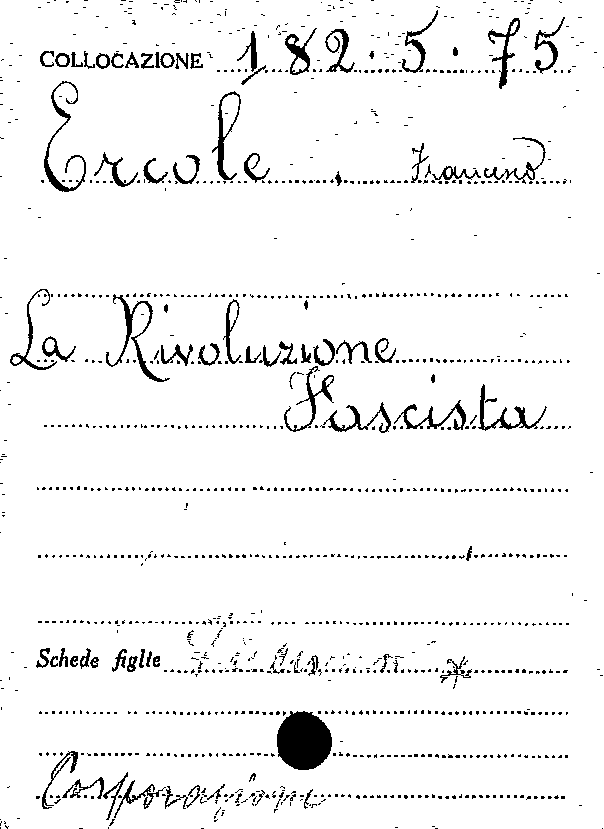 COLLOCAZIONE 182.5.75
Ercole. Francesco
La Rivoluzione
Fascista
Schede figlie
Corporazione